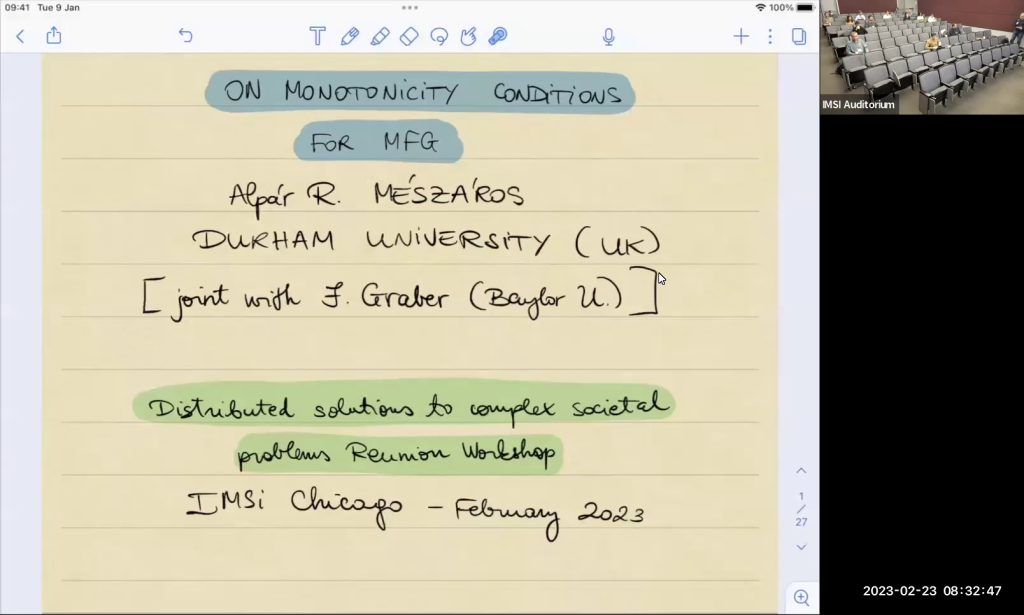 09:41 Tue 9 Jan
100%
ON MONOTONICITY CONDITIONS
FOR MFG
Alpár R. MÉSZÁROS
DURHAM UNIVERSITY (UK)
[joint with J. Graber (Baylor U.)]
Distributed solutions to complex societal
problems Reunion Workshop
IMSi Chicago – February 2023
1
/
27
IMSI Auditorium
2023-02-23 08:32:47